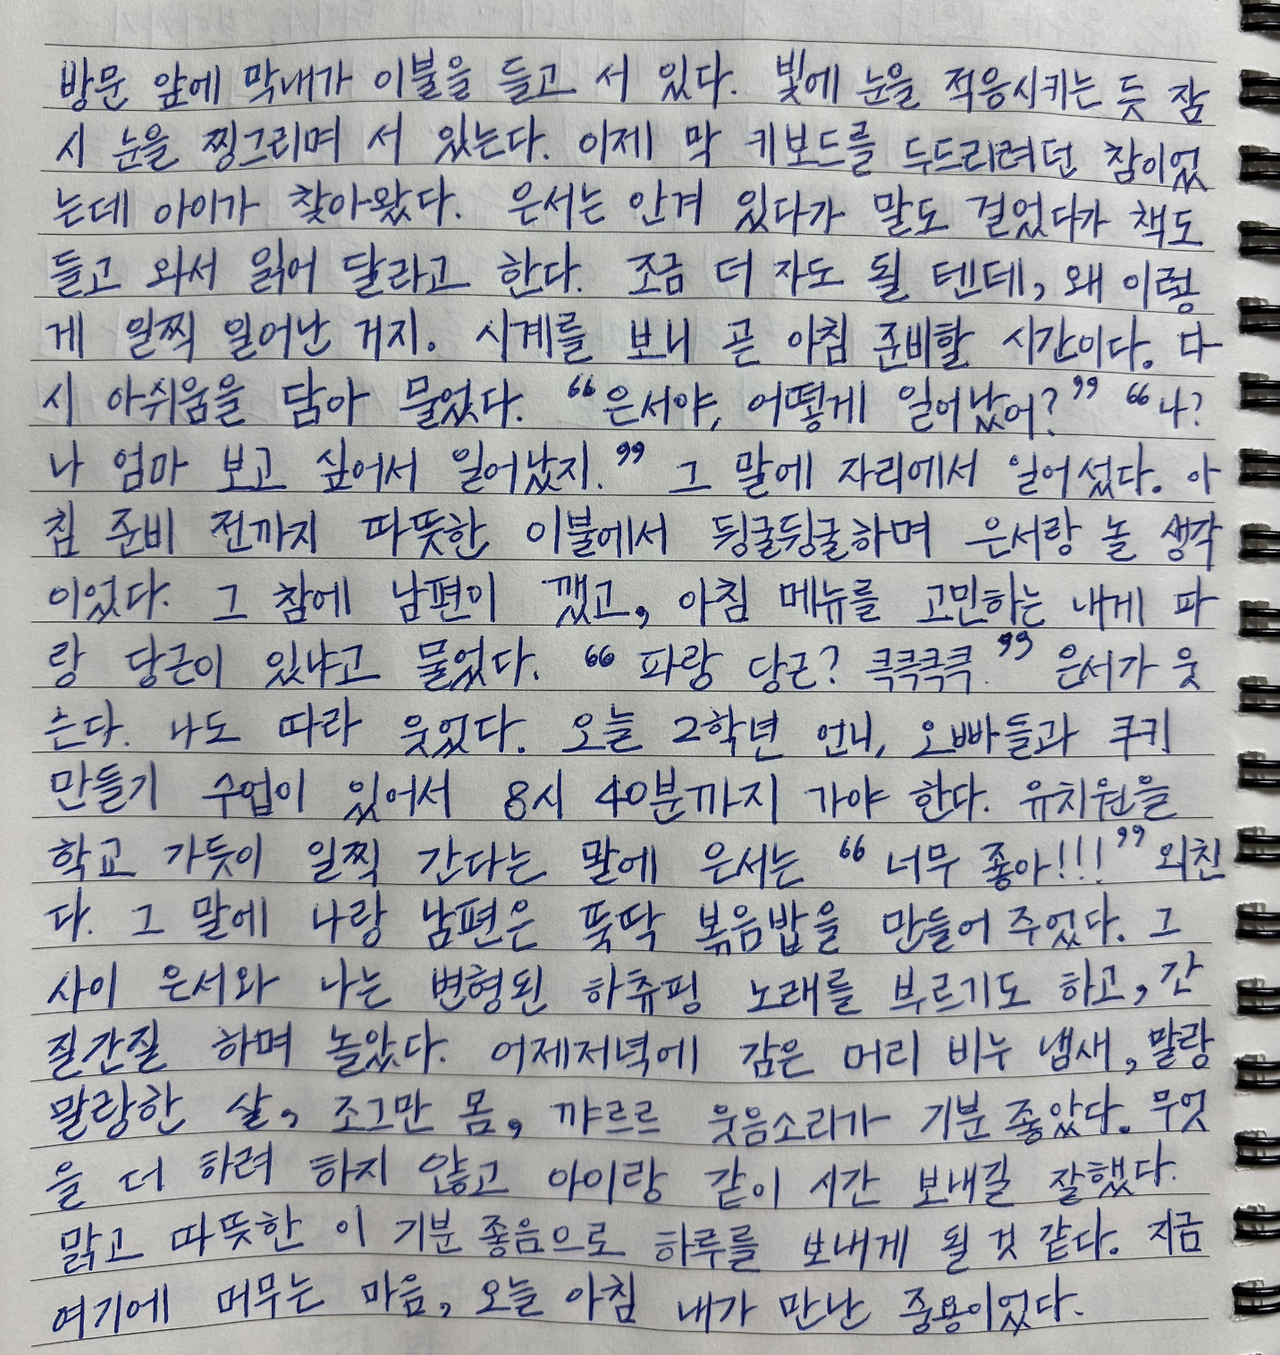 방문 앞에 막내가 이불을 들고 서 있다. 빛에 눈을 적응시키는 듯 잠
시 눈을 찡그리며 서 있는다. 이제 막 키보드를 두드리려던 참이었
는데 아이가 찾아왔다. 은서는 안겨 있다가 말도 걸었다가 책도
들고 와서 읽어 달라고 한다. 조금 더 자도 될 텐데, 왜 이렇
게 일찍 일어난 거지. 시계를 보니 곧 아침 준비할 시간이다. 다
시 아쉬움을 담아 물었다. “은서야, 어떻게 일어났어?” “나?
나 엄마 보고 싶어서 일어났지.” 그 말에 자리에서 일어섰다. 아
침 준비 전까지 따뜻한 이불에서 뒹굴뒹굴하며 은서랑 놀 생각
이었다. 그 참에 남편이 깼고, 아침 메뉴를 고민하는 내게 파
랑 당근이 있냐고 물었다. “파랑 당근? 킄킄킄킄.” 은서가 웃
는다. 나도 따라 웃었다. 오늘 2학년 언니, 오빠들과 쿠키
만들기 수업이 있어서 8시 40분까지 가야 한다. 유치원을
학교 가듯이 일찍 간다는 말에 은서는 “너무 좋아!!!” 외친
다. 그 말에 나랑 남편은 뚝딱 볶음밥을 만들어 주었다. 그
사이 은서와 나는 변형된 하츄핑 노래를 부르기도 하고, 간
질간질 하며 놀았다. 어제저녁에 감은 머리 비누 냄새, 말랑
말랑한 살, 조그만 몸, 꺄르르 웃음소리가 기분 좋았다. 무엇
을 더 하려 하지 않고 아이랑 같이 시간 보내길 잘했다.
맑고 따뜻한 이 기분 좋음으로 하루를 보내게 될 것 같다. 지금
여기에 머무는 마음, 오늘 아침 내가 만난 중용이었다.